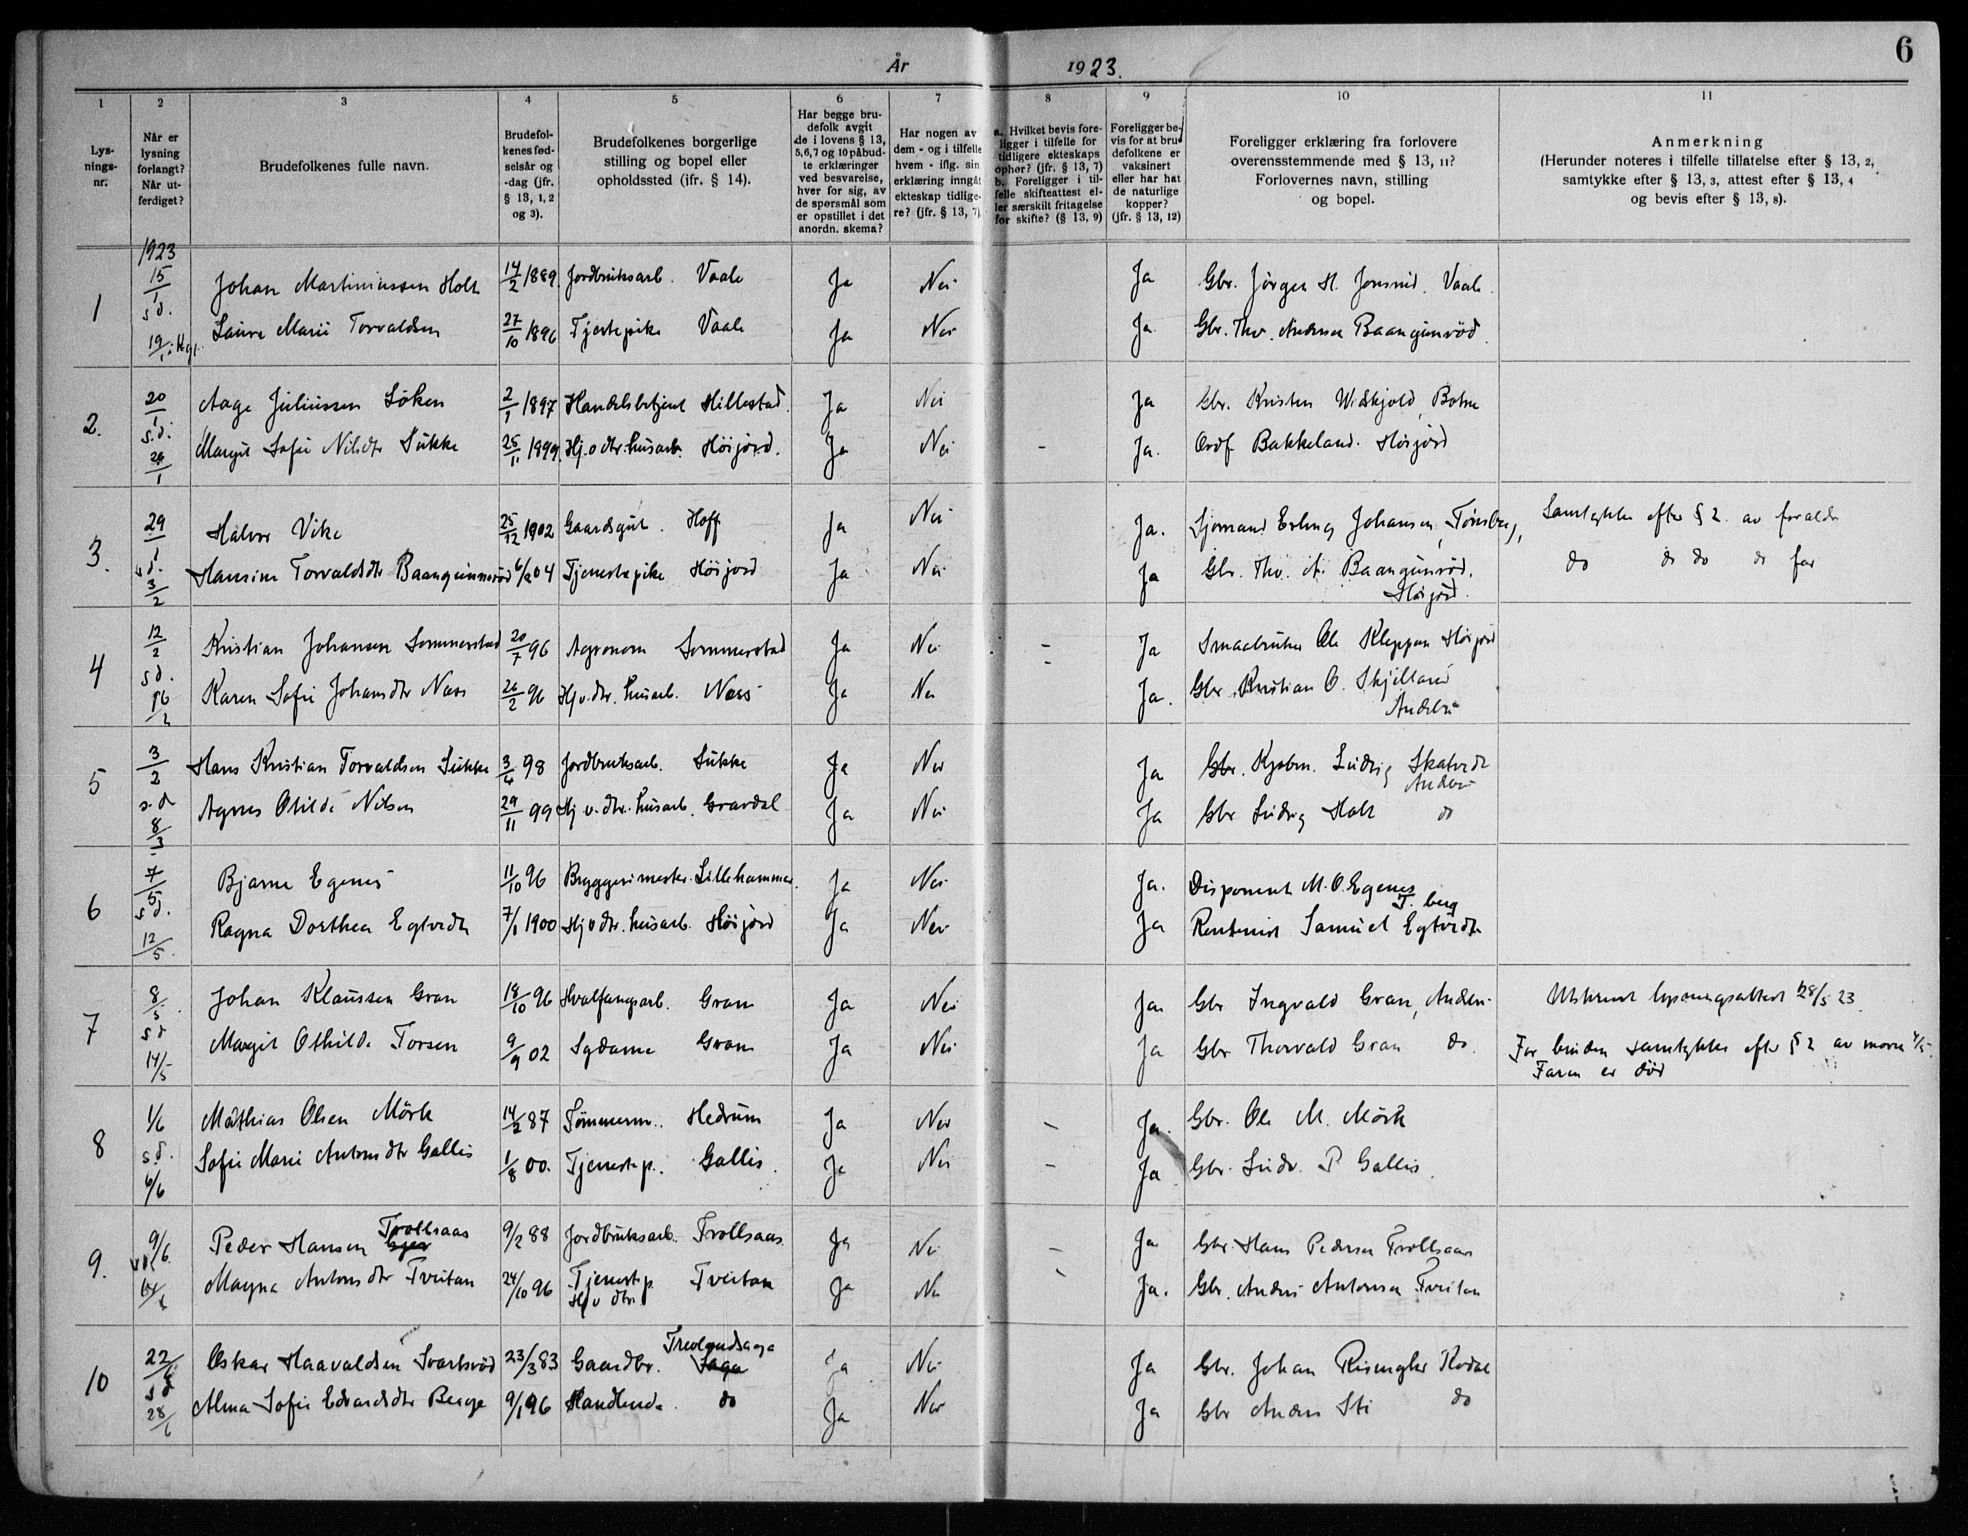 År 1923. 6
1 2 3 4 5 6 7 8 9 10 11
Lys-nings-nr.
Når er lysning forlangt? Når ut-ferdiget?
Brudefolkenes fulle navn.
Brudefol-kenes fød-selsår og -dag (jfr. § 13, 1, 2 og 3).
Brudefolkenes borgerlige stilling og bopel eller opholdssted (jfr. § 14).
Har begge bru-defolk avgit de i lovens § 13, 5,6,7 og 10 påbud-te erklæringer ved besvarelse, hver for sig, av de spørsmål som er opstillet i det anordn. skema?
Har nogen av dem - og i tilfelle hvem - iflg. sin erklæring inngåt ekteskap tidlige-re? (jfr. § 13, 7)
a. Hvilket bevis fore-ligger i tilfelle for tidligere ekteskaps ophør? (jfr. § 13, 7) b. Foreligger i til-felle skifteattest el-ler særskilt fritagelse for skifte? (§ 13, 9)
Foreligger be-vis for at bru-defolkene er vaksinert eller har hat de naturlige kopper? (jfr. § 13, 12)
Foreligger erklæring fra forlovere overensstemmende med § 13, 11? Forlovernes navn, stilling og bopel.
Anmerkning (Herunder noteres i tilfelle tillatelse efter § 13, 2, samtykke efter § 13, 3, attest efter § 13, 4 og bevis efter § 13, 8).
1923
1 15/1 Johan Martiniussen Holt 14/2 1889. Jordbruksarb. Vaale Ja Nei Ja Gbr. Jørgen H. Jonsrud, Vaale.
s.d. 19/1 Laura Marie Torvaldsen 27/10 1896 Tjenstepike Vaale Ja Nei Ja. Gbr. Thv. Andersen Baangunrød.
2. 20/1 Aage Juliussen Søken 2/1 1897 Handelsbetjent Hillestad. Ja Nei Ja Gbr. Kristen Widskjold, Botne
s.d. 24/1 Margit Sofie Nilsdtr Sukke 25/11 1899. Hj.v dtr. husarb. Høijord. Ja Nei - Ja. Ordf Bakkeland. Høijord
3. 29/1 Halvor Vike 25/12 1902 Gaardsgut. Hoff Ja Nei Ja. Sjømand Erling Johansen, Tønsberg, Samtykke efter § 2. av foreldr
s.d. 3/2 Hansine Torvaldsdtr Baangunnerød 6/2 04 Tjenestepike Høijord Ja Nei Ja Gbr. Thv. A. Baangunrød. do do do do far
Høijord.
4 12/2 Kristian Johansen Sommerstad 20/7 96 Agronom Sommerstad Ja Nei - Ja Smaabruker Ole Kleppan Høijord
s.d. 16/2 Karen Sofie Johansdtr Næss 26/2 96 Hj v. dtr. husarb. Næss Ja Nei - Ja. Gbr. Kristian O. Skjelland
Andebu
5 3/2 Hans Kristian Torvaldsen Sukke 3/4 98 Jordbruksarb. Sukke Ja Nei Ja Gbr. Kjøbm. Ludvig Skatvedt
Andebu
s.d 8/3 Agnes Otilde Nilsen 29/11 99 Hj v. dtr. husarb. Gravdal Ja Nei Ja Gbr Ludvig Holt do
6 7/5 Bjarne Egenes 11/10 96 Bryggerimester. Lillehammer. Ja Nei Ja. Disponent M. O. Egenes
T.berg
s.d. 12/5. Ragna Dorthea Egtvedt 7/1 1900 Hj v dtr. husarb. Høijord Ja Nei Ja Rentenist Samuel Egtvedt
7 8/5. Johan Klaussen Gran 18/10 96 Hvalfangsarb. Gran Ja Nei Ja. Gbr Ingvald Gran, Andebu Utskrevet lysningsattest 28/5 23.
s.d 14/5 Margit Othilde Torsen 9/9 02 Sydame Gran Ja Nei Ja Gbr Thorvald Gran do. For bruden samtykke efter § 2 av moren 4/5.
Faren er død
8 1/6 Mathias Olsen Mørk 14/2 87 Tømmerm.. Hedrum Ja Nei - Ja. Gbr. Ole M. Mørk
s.d. 6/6 Sofie Marie Antonsdtr Gallis 1/8 00. Tjenestp.. Gallis. Ja Nei - Ja Gbr. Ludv. P Gallis.
9. 9/6 Peder Hansen Trollsaas 9/2 88 Jordbruksarb.. Trollsaas. Ja Nei - Ja Gbr. Hans Pedersen Trollsaas
14/6 Magna Antonsdtr Tveitan 24/10 96 Tjenestp Tveitan Ja Nei - Ja. Gbr. Anders Antonsen Tveitan
Hj v dtr
Trevlandsaga
10 22/6 Oskar Haavaldsen Svartsrød 23/3 83 Gaardbr. Saga Ja Nei Ja Gbr. Johan Kodal
s.d 28/6 Alma Sofie Edvardsdtr Berge 9/1 96 Handlende. do Ja Nei Ja Gbr Anders Sti do